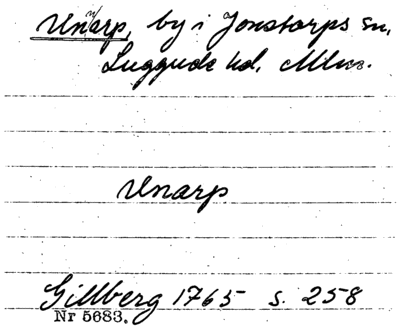 Unarp, by i Jonstorps sn,
Luggude hd, Mlm.
Unarp
Gillberg 1765 s. 258
Nr 5683.